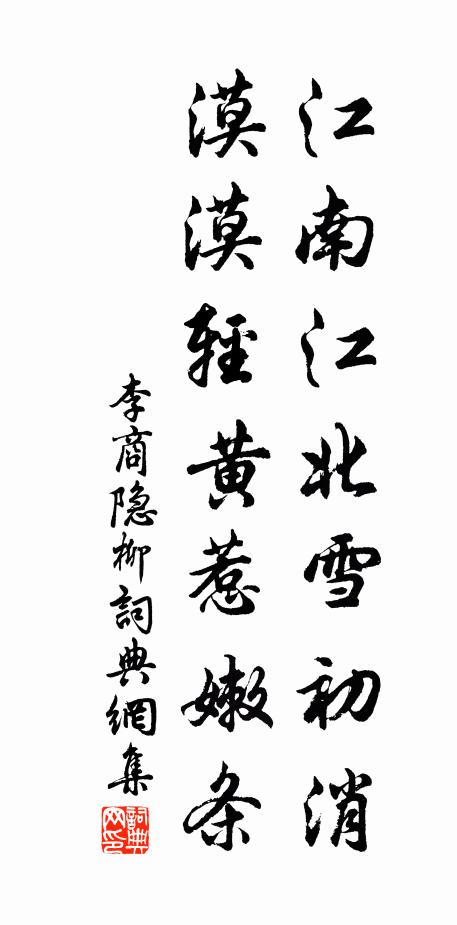 江南江北雪初消
漠漠輕黄惹嫩条
李商隐柳詞典網集
詞典网印